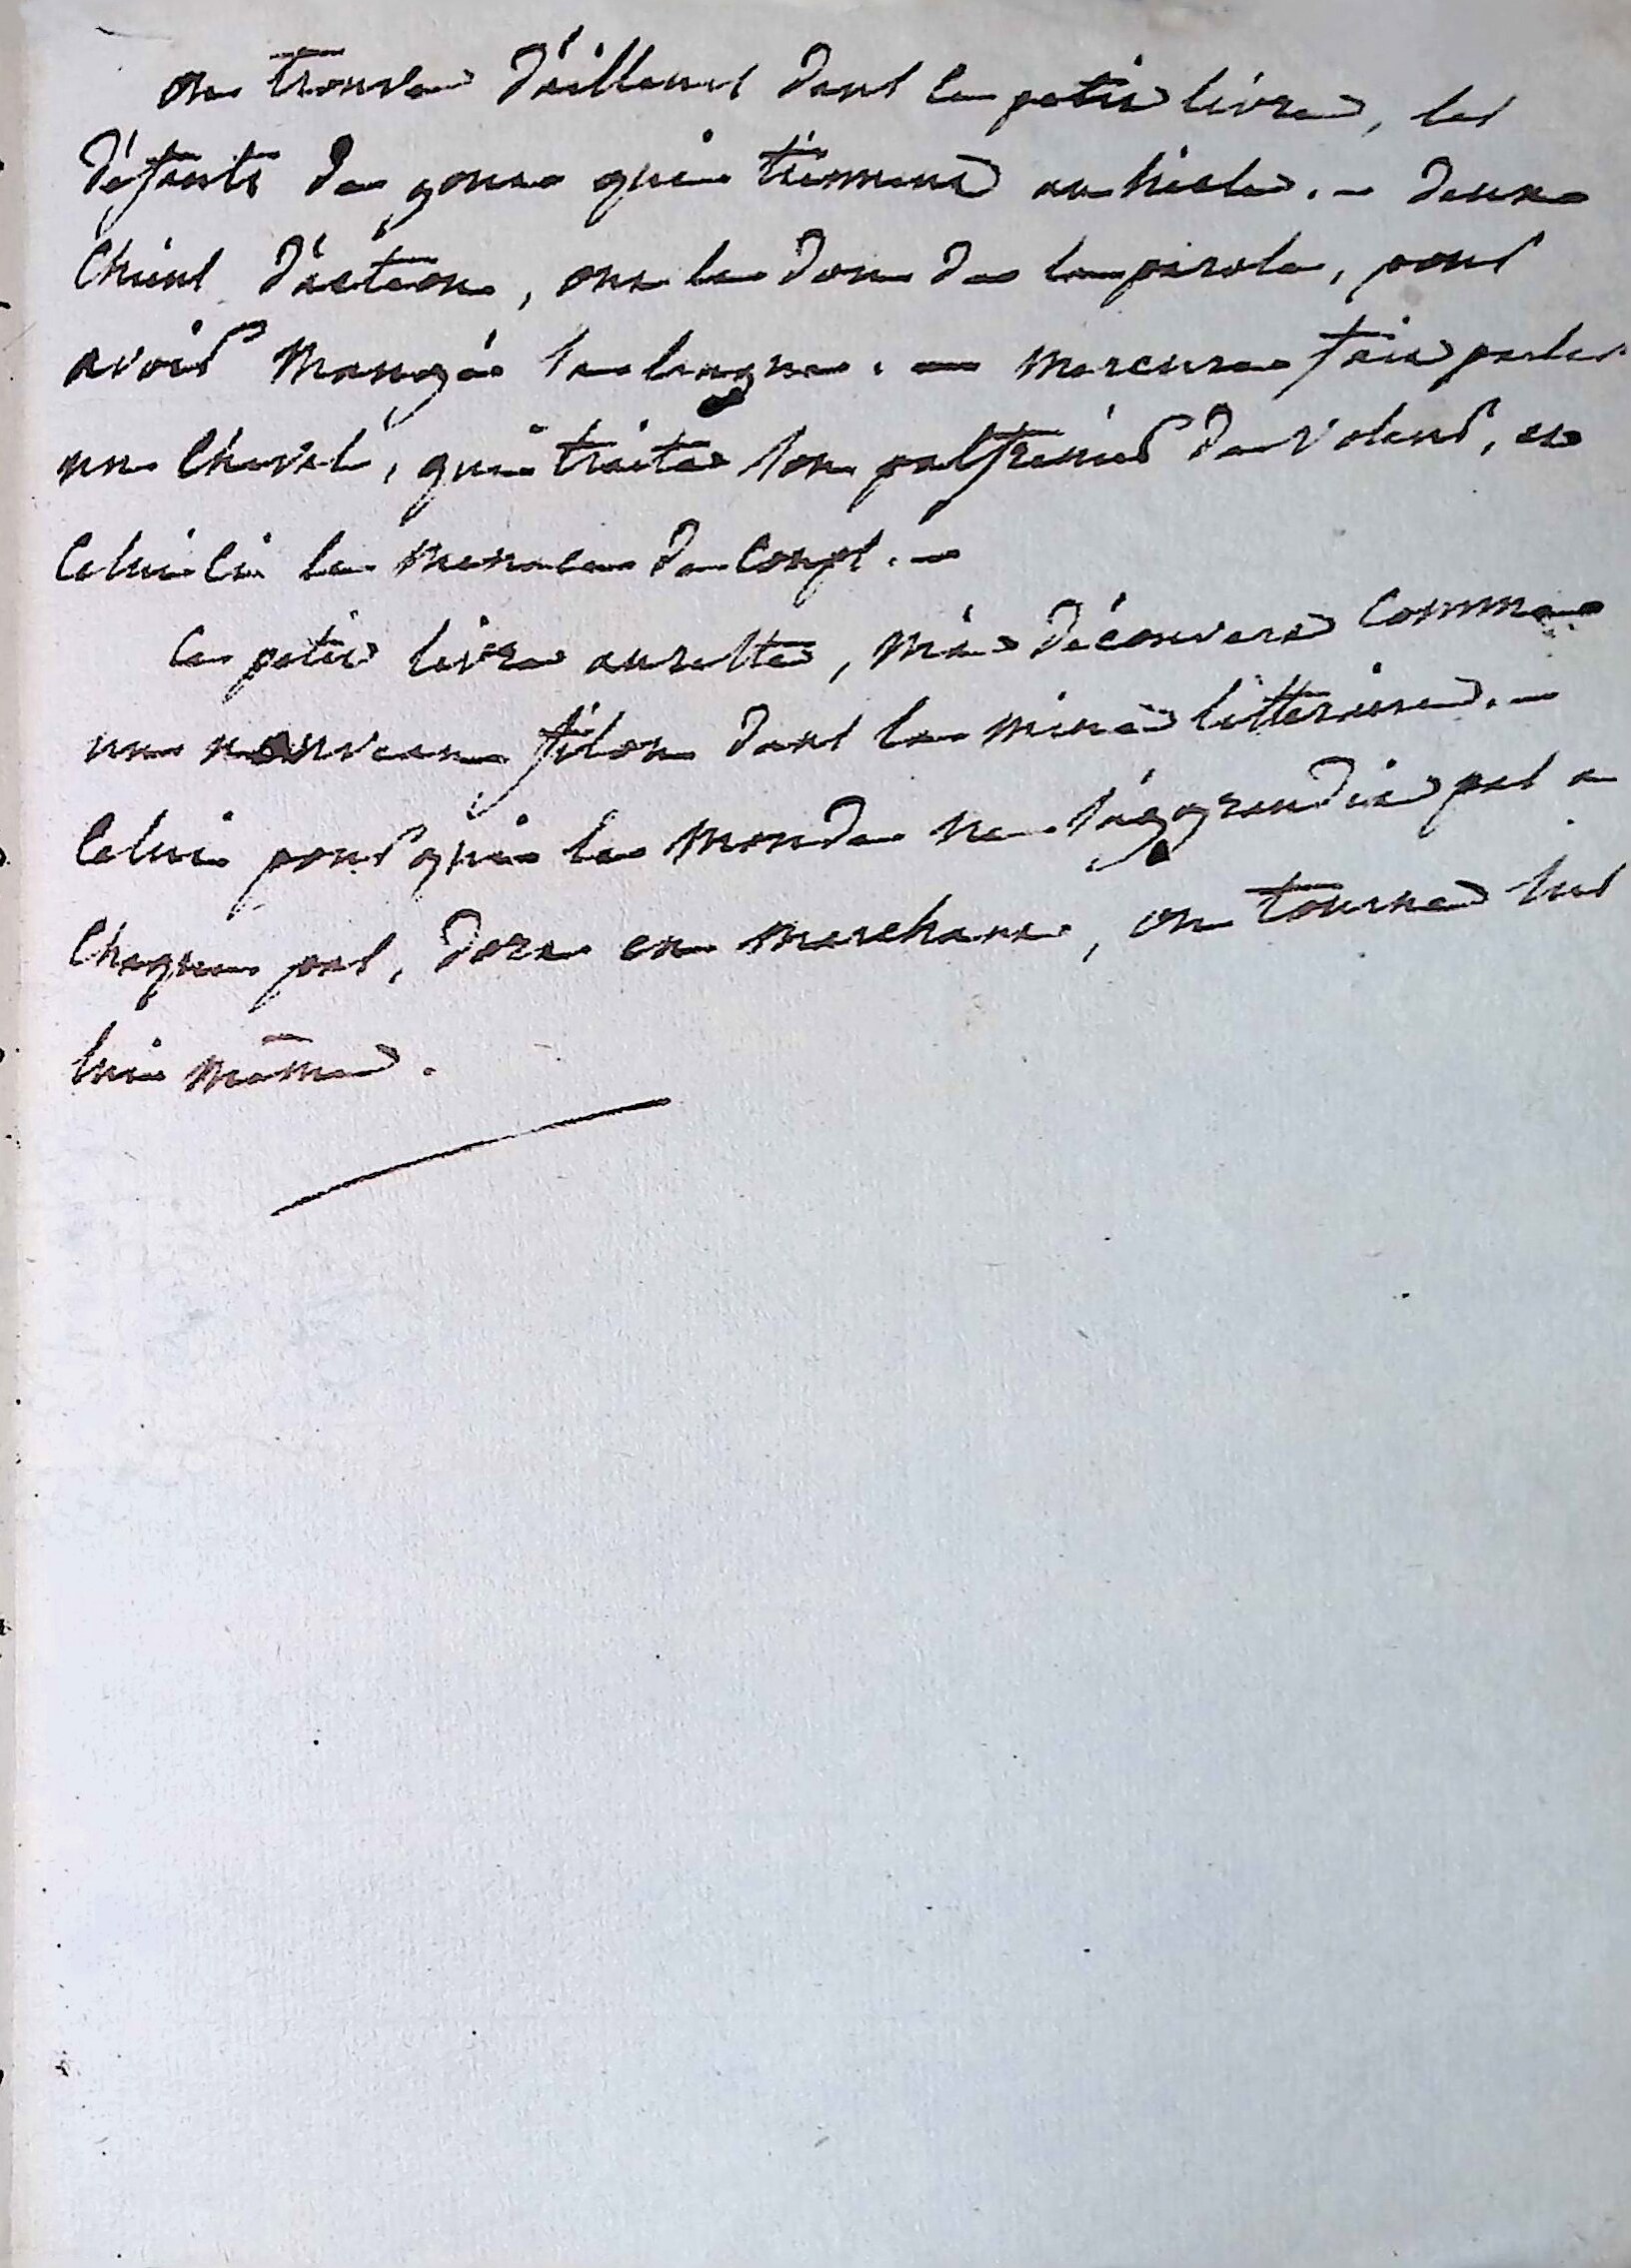 on trouve d'ailleurs dans ce petit livre, les
défauts de gout qui tiennent au siecle. – deux
chiens d'acteon, ont le don de la parole, pour
avoir mangé sa langue. – mercure fait parler
un cheval, qui traite son palfrenier de voleur, et
celui ci le menace de coups. –
ce petit livre au reste, m'a découvert comme
un nouveau filon dans la mine litteraire. –
celui pour qui le monde ne s'aggrandit pas a
chaque pas, dort en marchant, ou tourne sur
lui même.